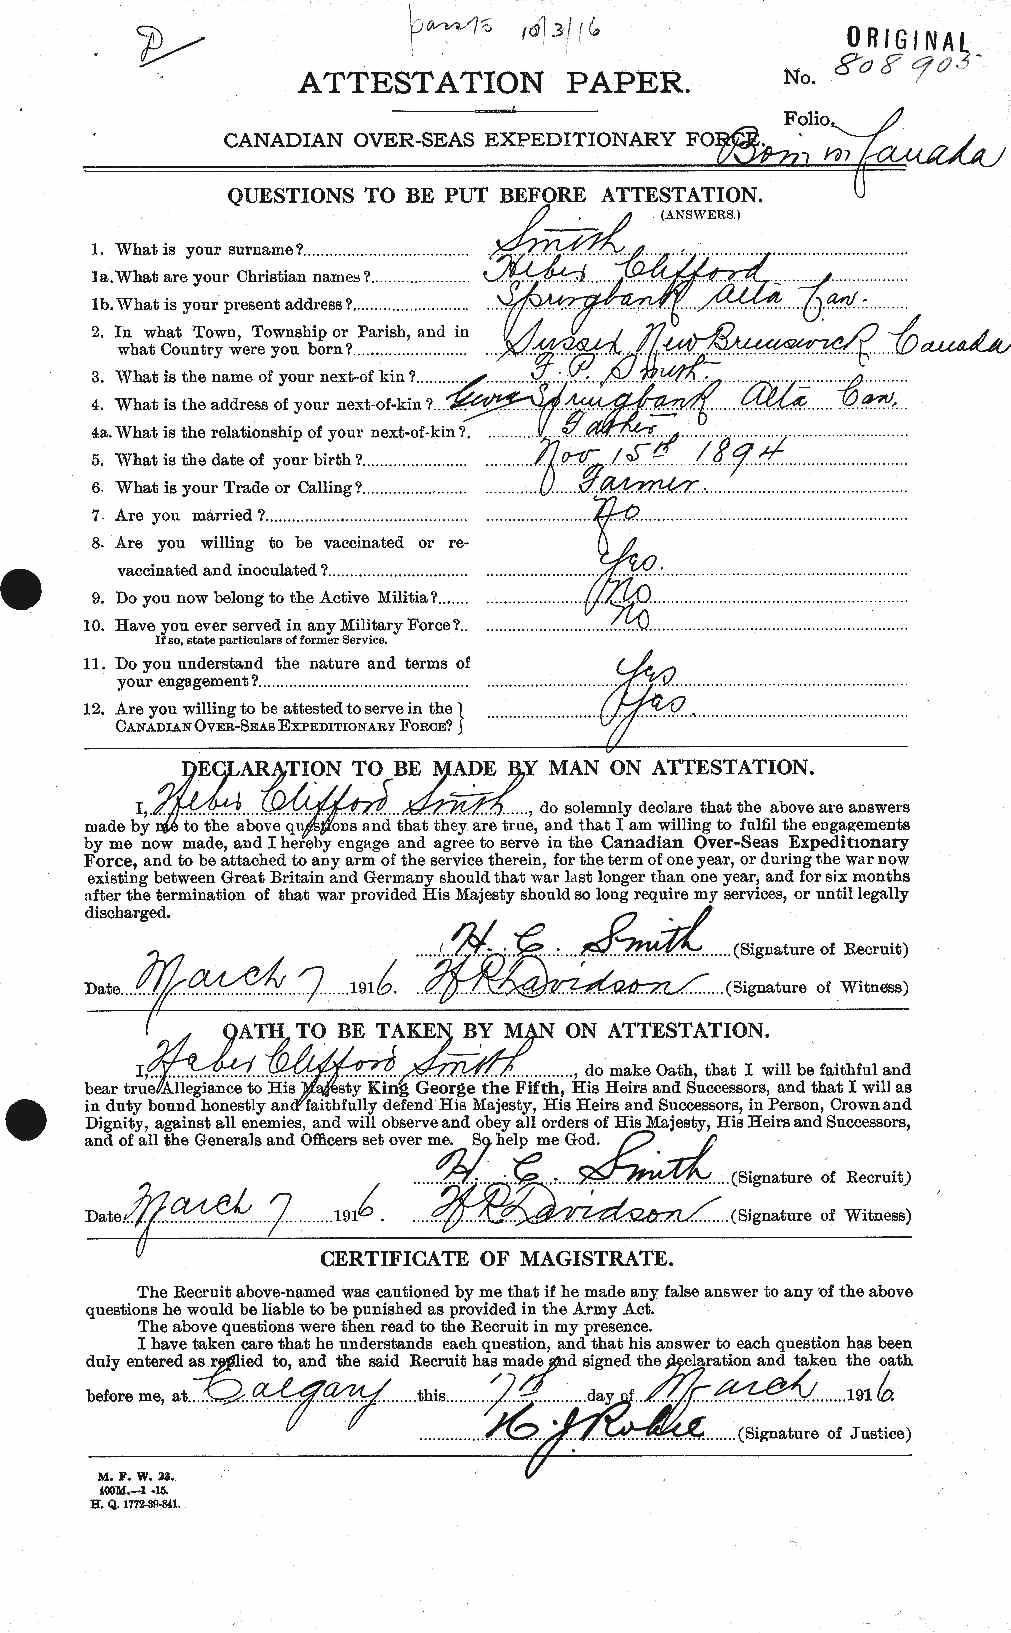 D
10/3/16
ORIGINAL
No. 808903
ATTESTATION PAPER.
Folio.
CANADIAN OVER-SEAS EXPEDITIONARY FORCE.
Born in Canada
QUESTIONS TO BE PUT BEFORE ATTESTATION.
(ANSWERS.)
1. What is your surname? Smith
1a. What are your Christian names? Heber Clifford
1b. What is your present address? Springbank Alta Can.
2. In what Town, Township or Parish, and in
what Country were you born? Sussex New Brunswick Canada
3. What is the name of your next-of kin? F. P. Smith.
4. What is the address of your next-of-kin? Springbank Alta Can.
4a. What is the relationship of your next-of-kin? Father
5. What is the date of your birth? Nov 15th 1894
6. What is your Trade or Calling? Farmer.
7. Are you married? No
8. Are you willing to be vaccinated or re-
vaccinated and inoculated? Yes.
9. Do you now belong to the Active Militia? No
10. Have you ever served in any Military Force? No
If so, state particulars of former Service.
11. Do you understand the nature and terms of
your engagement? Yes
12. Are you willing to be attested to serve in the
CANADIAN OVER-SEAS EXPEDITIONARY FORCE? Yes.
DECLARATION TO BE MADE BY MAN ON ATTESTATION.
I, Heber Clifford Smith, do solemnly declare that the above are answers
made by me to the above questions and that they are true, and that I am willing to fulfil the engagements
by me now made, and I hereby engage and agree to serve in the Canadian Over-Seas Expeditionary
Force, and to be attached to any arm of the service therein, for the term of one year, or during the war now
existing between Great Britain and Germany should that war last longer than one year, and for six months
after the termination of that war provided His Majesty should so long require my services, or until legally
discharged.
H. C. Smith (Signature of Recruit)
Date March 7 1916. W R Davidson (Signature of Witness)
OATH TO BE TAKEN BY MAN ON ATTESTATION.
I, Heber Clifford Smith, do make Oath, that I will be faithful and
bear true Allegiance to His Majesty King George the Fifth, His Heirs and Successors, and that I will as
in duty bound honestly and faithfully defend His Majesty, His Heirs and Successors, in Person, Crown and
Dignity, against all enemies, and will observe and obey all orders of His Majesty, His Heirs and Successors,
and of all the Generals and Officers set over me. So help me God.
H. C. Smith (Signature of Recruit)
Date March 7 1916. W R Davidson (Signature of Witness)
CERTIFICATE OF MAGISTRATE.
The Recruit above-named was cautioned by me that if he made any false answer to any of the above
questions he would be liable to be punished as provided in the Army Act.
The above questions were then read to the Recruit in my presence.
I have taken care that he understands each question, and that his answer to each question has been
duly entered as replied to, and the said Recruit has made and signed the declaration and taken the oath
before me, at Calgary this 7th day of March 1916.
(Signature of Justice)
M. F. W. 23.
400M.—1-15.
H. Q. 1772-39-841.